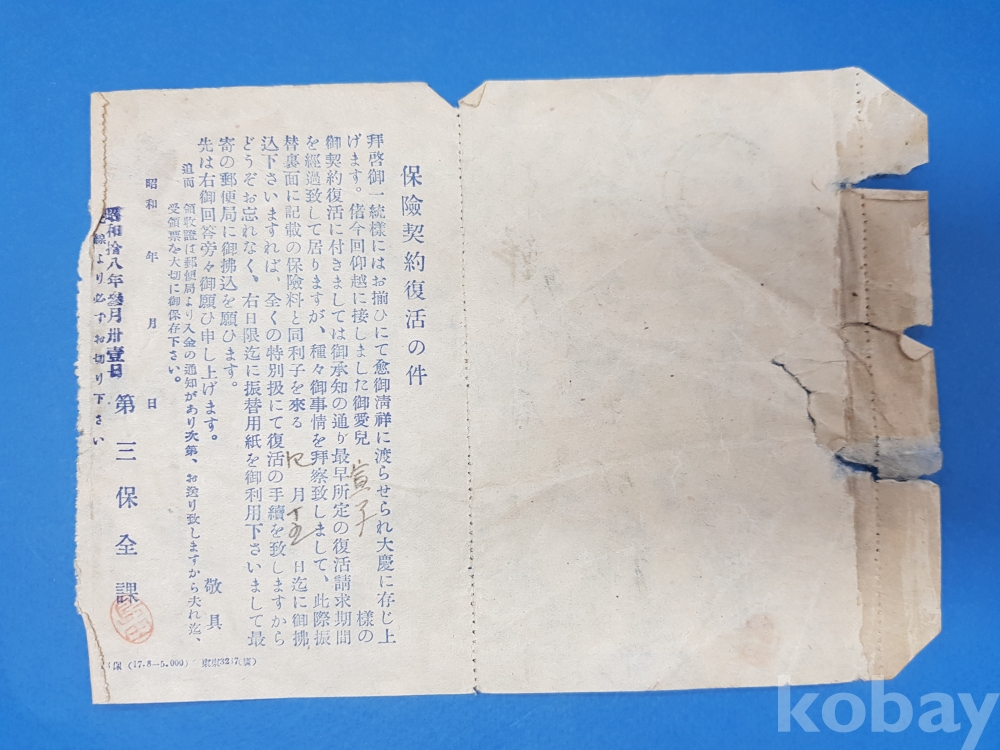 保險契約復活の件
拜啓御一統樣にはお揃ひにて愈御淸祥に渡らせられ大慶に存じ上
げます。偖今回仰越に接しました御愛兒 宣子 樣の
御契約復活に付きましては御承知の通り最早所定の復活請求期間
を經過致して居りますが、種々御事情を拜察致しまして、此際振
替裏面に記載の保險料と同利子を來る 月 日迄に御拂
込下さいますれば、全くの特別扱にて復活の手續を致しますから
どうぞお忘れなく、右日限迄に振替用紙を御利用下さいまして最
寄の郵便局に御拂込を願ひます。
先は右御回答旁々御願ひ申し上げます。 敬具
追而 領收證は郵便局より入金の通知があり次第、お送り致しますから夫れ迄、
受領票を大切に御保存下さい。
昭和 年 月 日
昭和拾八年參月卅壹日
第三保全課
線より必ずお切り下さい
保 (17.8—5,000)
kobay